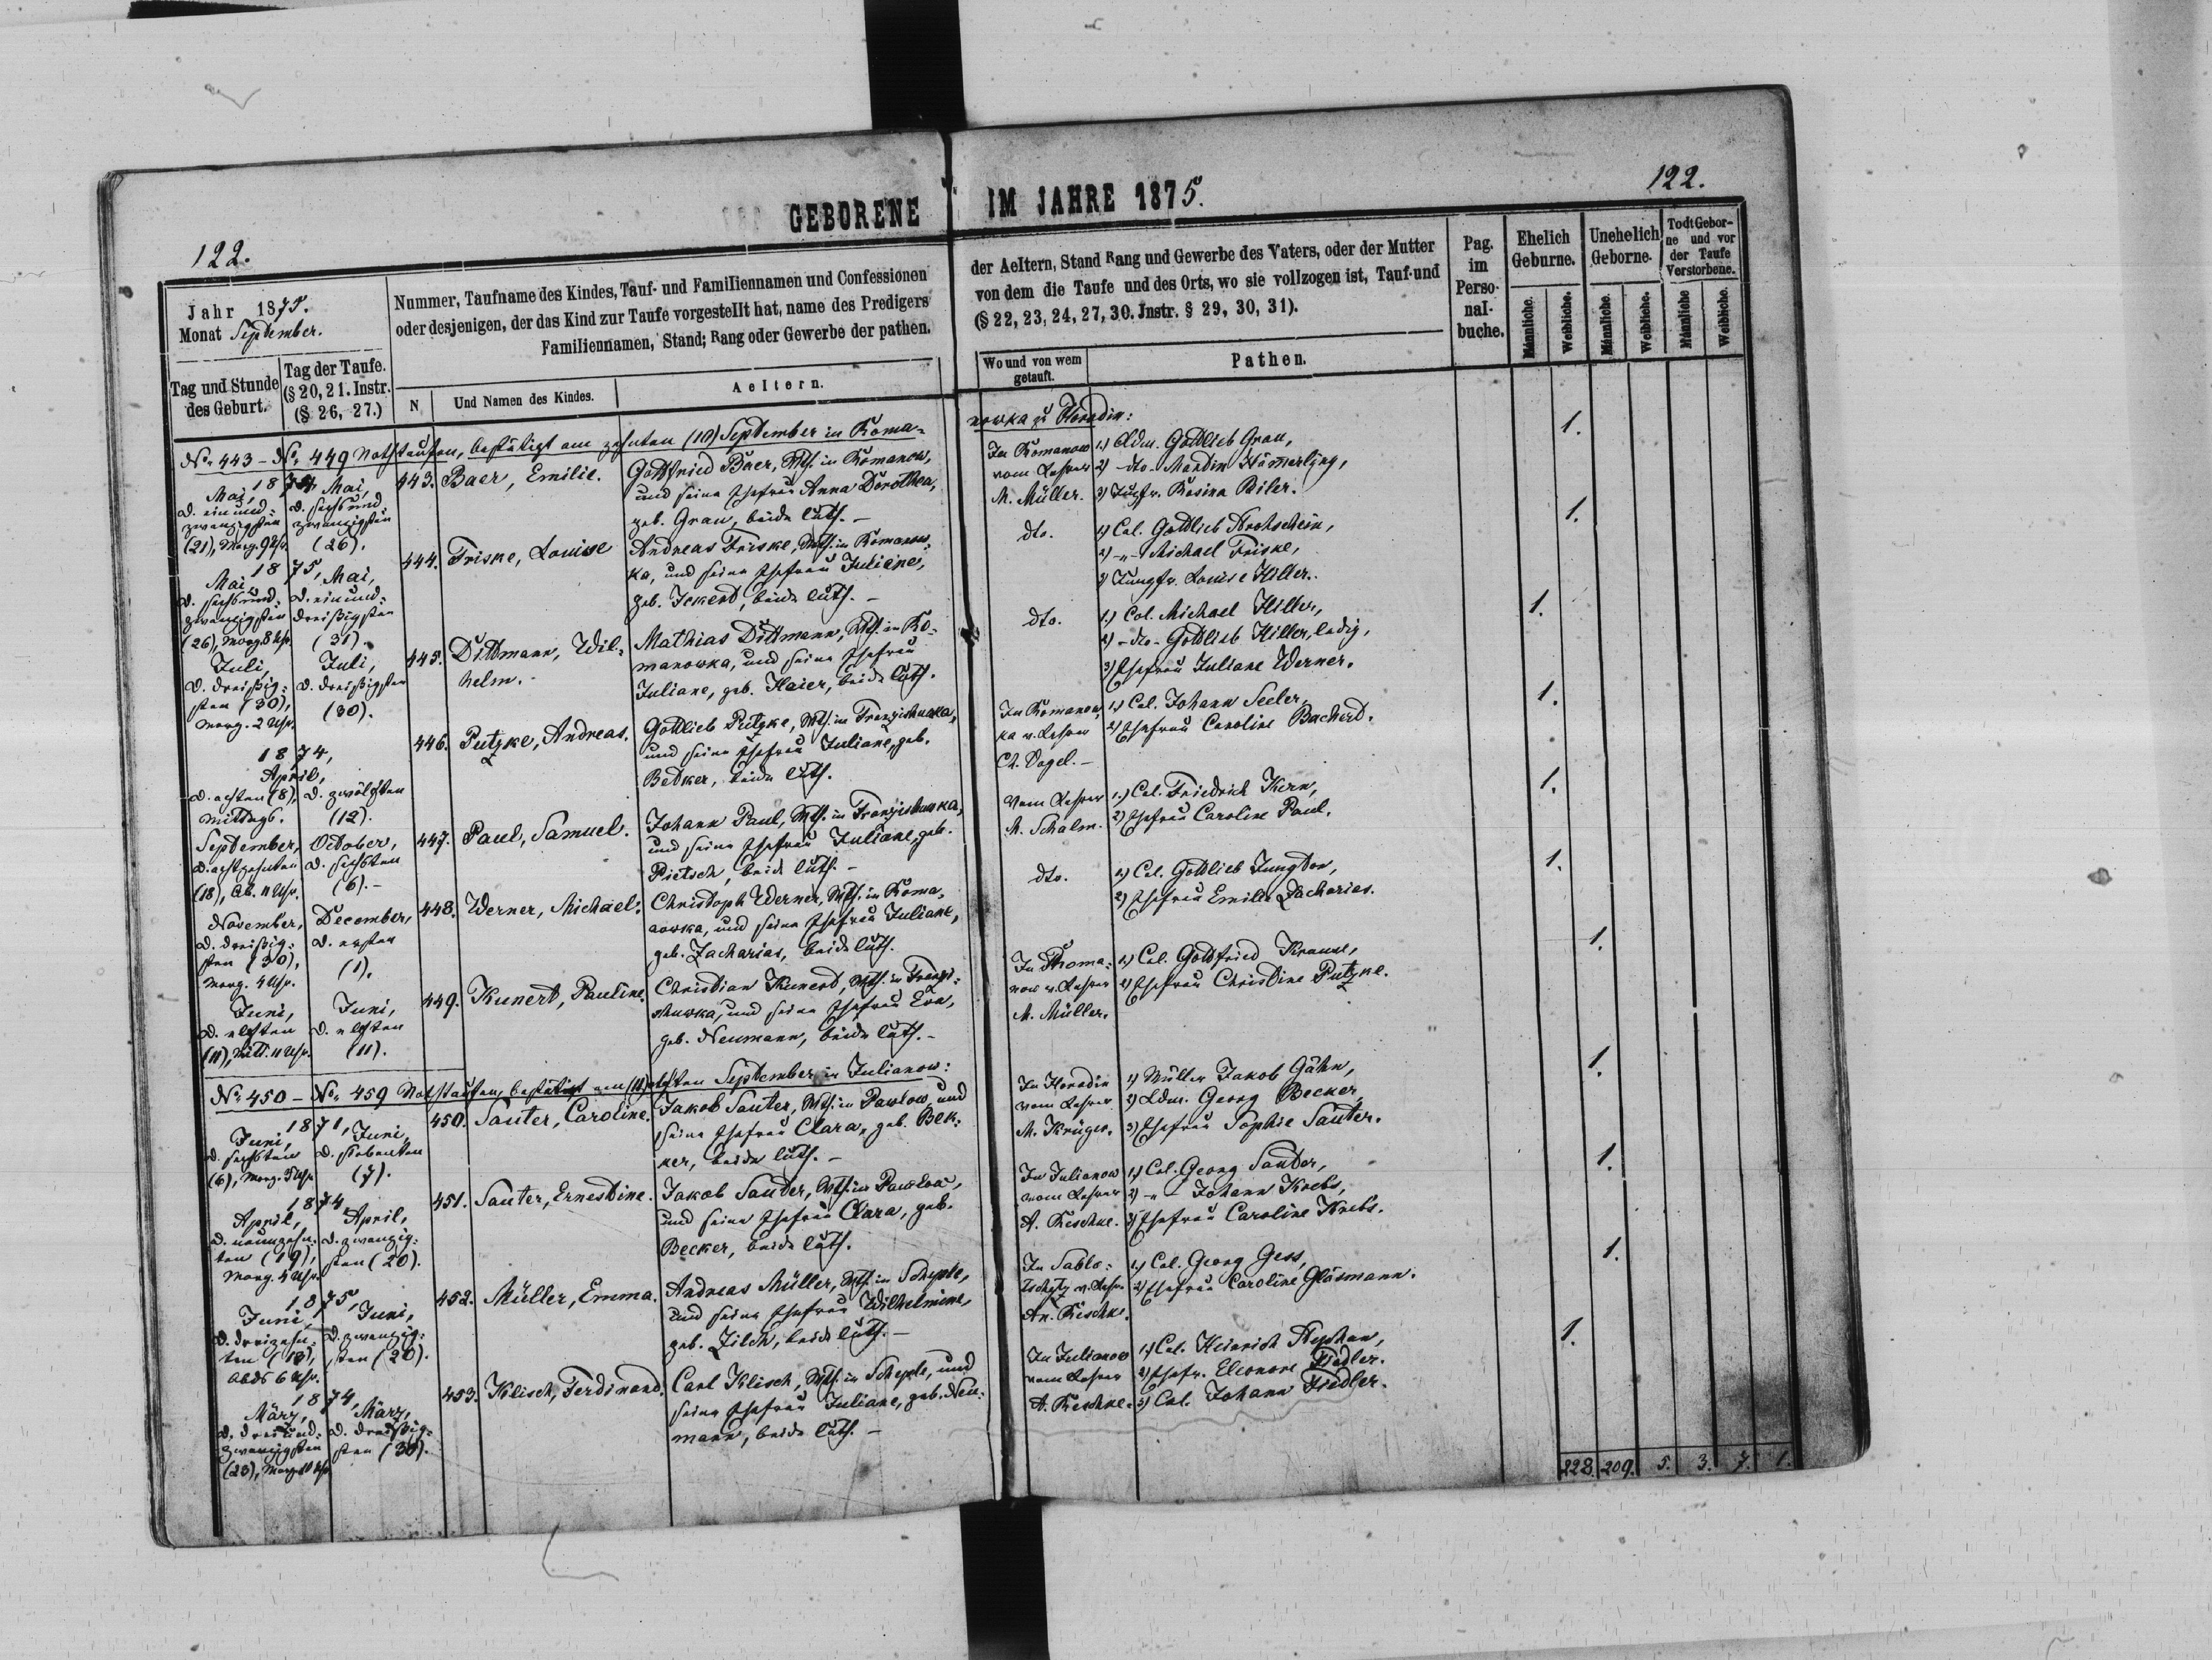 GEBORENE IM JAHRE 1875.
122.
122.
Jahr 1875.
Monat September.
Tag und Stunde des Geburt.
Tag der Taufe. (§ 20, 21. Instr. (§ 26, 27.)
Nummer, Taufname des Kindes, Tauf- und Familiennamen und Confessionen
oder desjenigen, der das Kind zur Taufe vorgestellt hat, name des Predigers
Familiennamen, Stand; Rang oder Gewerbe der pathen.
N
Und Namen des Kindes.
Aeltern.
der Aeltern, Stand Rang und Gewerbe des Vaters, oder der Mutter
von dem die Taufe und des Orts, wo sie vollzogen ist, Tauf-und
(§ 22, 23, 24, 27, 30. Jnstr. § 29, 30, 31).
Wo und von wem getauft.
Pathen.
Pag. im Perso-nal-buche.
Ehelich Geburne.
Unehelich Geborne.
Todt Gebor-ne und vor der Taufe Verstorbene.
Männliche. Weibliche. Männliche. Weibliche. Männliche Weibliche.
No. 443 – No. 449 Nothtaufen, bestätigt am zehnten (10) September in Roma-
nowka zu Horodin:
1874,
Mai,
d. ein und-
zwanzigsten
(21), Morg. 9 Uhr.
Mai,
d. sechs und
zwanzigsten
(26).
443. Baer, Emilie.
Gottfried Baer, in Romanow,
und seine Ehefrau Anna Dorothea,
geb. Grau, beide luth. –
In Romanow
vom Lehrer
M. Müller.
1) Gottlieb Grau,
2) -dto- Martin Hämerling,
3) Jungfr. Rosina Biler.
1.
1875,
Mai,
d. sechs und-
zwanzigsten
(26), Morg. 8 Uhr.
Mai,
d. ein und-
dreißigsten
(31).
444. Friske, Louise
Andreas Friske, in Romanow-
ka, und seine Ehefrau Juliane,
geb. Ickert, beide luth. –
dto.
1) Col. Gottlieb Strohschein,
2) -„- Michael Friske,
3) Jungfr. Louise Hiller.
1.
Juli,
d. dreißig-
sten (30),
Morg. 2 Uhr.
Juli,
d. dreißigsten
(30).
445. Dittmann, Wil-
helm. -
Mathias Dittmann, in Ro-
manowka, und seine Ehefrau
Juliane, geb. Haier, beide luth.
dto.
1) Col. Michael Hiller,
2) -dto- Gottlieb Hiller, ledig,
3) Ehefrau Juliane Werner.
1.
1874,
April,
d. achten (8),
Mittags.
d. zwölften
(12).
446. Putzke, Andreas.
Gottlieb Putzke, in Franzischuwka,
und seine Ehefrau Juliane, geb.
Betker, beide luth.
In Romanow-
ka v. Lehrer
Ch. Vogel. –
1) Col. Johann Seeler,
2) Ehefrau Caroline Bachert.
1.
September,
d. achtzehnten
(18), Ab. 11 Uhr.
October,
d. sechsten
(6). –
447. Paul, Samuel.
Johann Paul, in Franzischuwka,
und seine Ehefrau Juliane, geb.
Pietsch, beide luth. –
Vom Lehrer
M. Schalm.
1) Col. Friedrich Kern,
2) Ehefrau Caroline Paul.
1.
November,
d. dreißig-
sten (30),
Morg. 4 Uhr.
December,
d. ersten
(1).
448. Werner, Michael.
Christoph Werner, in Roma-
nowka, und seine Ehefrau Juliane,
geb. Zacharias, beide luth.
dto.
1) Col. Gottlieb Jungton,
2) Ehefrau Emilie Zacharias.
1.
Juni,
d. elften
(11), Mitt. 11 Uhr.
Juni,
d. elften
(11).
449. Kunert, Pauline.
Christian Kunert, in Franzi-
schuwka, und seine Ehefrau Eva,
geb. Neumann, beide luth. -
In Roma-
now v. Lehrer
M. Müller.
1) Col. Gottfried Krause,
2) Ehefrau Christine Putzke.
1.
No. 450 – No. 459 Nothtaufen, bestätigt am (11) elften September in Julianow:
1871,
Juni,
d. sechsten
(6), Morg. 3 Uhr
Juni,
d. siebenten
(7).
450. Sauter, Caroline.
Jakob Sauter, in Pawlow, und
seine Ehefrau Clara, geb. Bek-
ker, beide luth. –
In Horodin
vom Lehrer
M. Krüger.
1) Müller Jakob Gähn,
2) Georg Becker,
3) Ehefrau Sophie Sauter.
1.
1874,
April,
d. neunzehn-
ten (19),
Morg. 4 Uhr.
April,
d. zwanzig-
sten (20).
451. Sauter, Ernestine.
Jakob Sauter, in Pawlow,
und seine Ehefrau Clara, geb.
Becker, beide luth.
In Julianow
vom Lehrer
A. Keschke.
1) Col. Georg Sauter,
2) -„- Johann Krebs,
3) Ehefrau Caroline Krebs.
1.
1875,
Juni,
d. dreizehn-
ten (13),
Abds 6 Uhr.
Juni,
d. zwanzig-
sten (20).
452. Müller, Emma.
Andreas Müller, in Schepte,
und seine Ehefrau Wilhelmine,
geb. Zilch, beide luth. –
In Sablo-
tschetz v. Lehr.
An. Keschke.
1) Col. Georg Gess,
2) Ehefrau Caroline Glösmann.
1.
1874,
März,
d. drei und-
zwanzigsten
(23),
März,
d. dreißig-
sten (30).
453. Klisch, Ferdinand.
Carl Klisch, in Schepte, und
seine Ehefrau Juliane, geb. Neu-
mann, beide luth. –
In Julianow
vom Lehrer
A. Keschke.
1) Col. Heinrich Stephan,
2) Ehefr. Eleonore Fiedler.
3) Col. Johann Fiedler.
1.
228. 209. 5. 3. 7. 1.